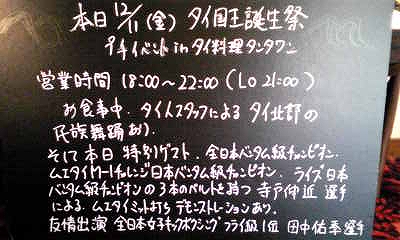 本日 12/11 (金) タイ国王誕生祭
プチイベント in タイ料理タンタワン
営業時間 18:00〜22:00 (LO 21:00)
お食事中、タイ人スタッフによる タイ北部の
民族舞踊あり。
そして本日 特別ゲスト、全日本バンタム級チャンピオン、
ムエタイワールドチャレンジ日本バンタム級チャンピオン、ライズ日本
バンタム級チャンピオンの3本のベルトを持つ 寺戸伸近 選手
による、ムエタイミット打ち デモンストレーションあり。
友情出演 全日本女子キックボクシング フライ級1位 田中佑季選手